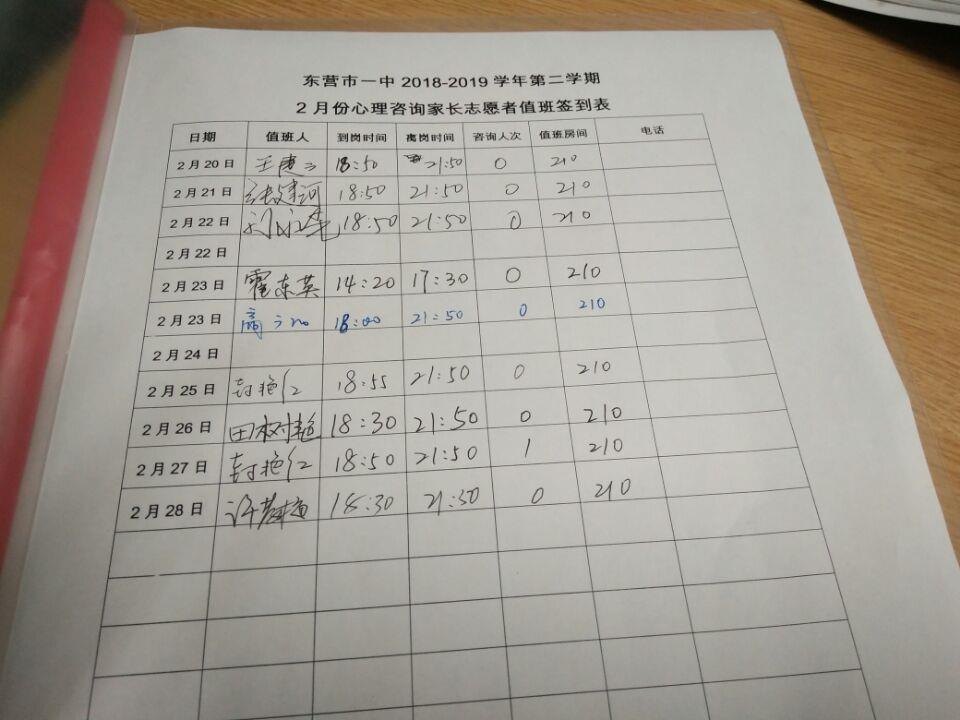 东营市一中 2018-2019 学年第二学期
2 月份心理咨询家长志愿者值班签到表
日期 值班人 到岗时间 离岗时间 咨询人次 值班房间 电话
2 月 20 日 18:50 21:50 0 210
2 月 21 日 张建河 18:50 21:50 0 210
2 月 22 日 18:50 21:50 0 210
2 月 22 日
2 月 23 日 霍东英 14:20 17:30 0 210
2 月 23 日 18:00 21:50 0 210
2 月 24 日
2 月 25 日 封艳红 18:55 21:50 0 210
2 月 26 日 田树艳 18:30 21:50 0 210
2 月 27 日 封艳红 18:50 21:50 1 210
2 月 28 日 18:30 21:50 0 210